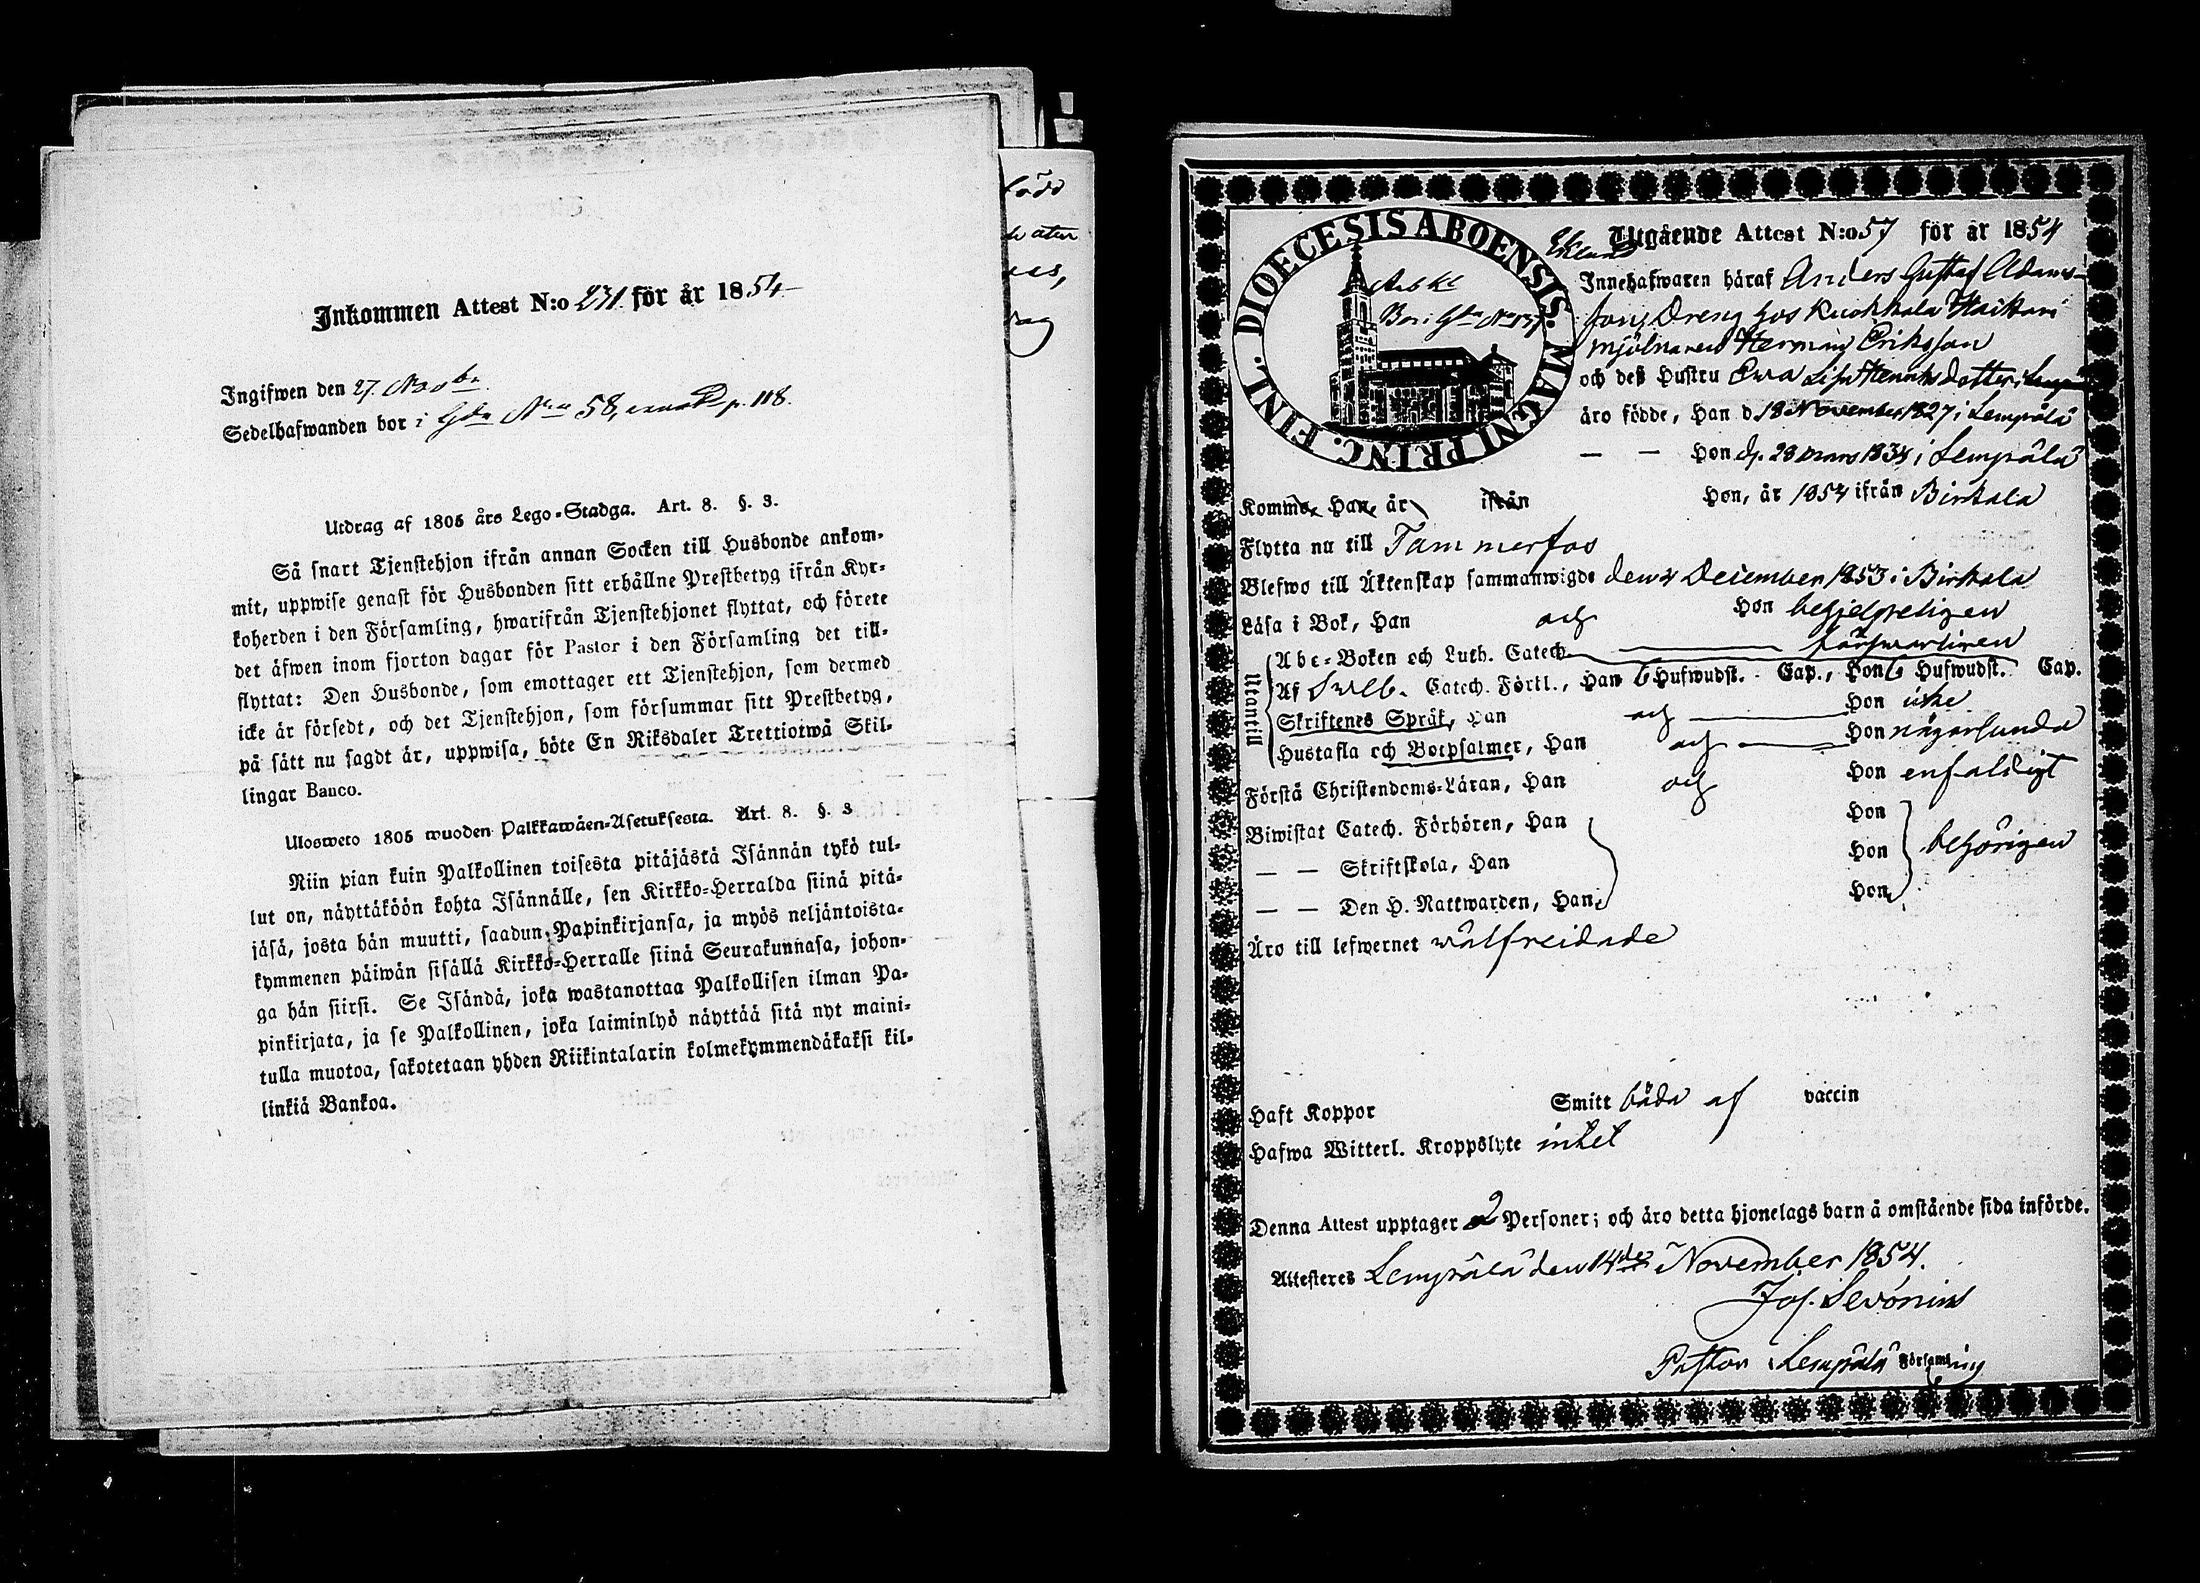 Inkommen Attest N:o 231. för år 1854
Ingifwen den 27. Novbr
Sedelhafwanden bor i Gdn No 58, p. 118.
Utdrag af 1805 års Lego-Stadga. Art. 8. §. 3.
Så snart Tjenstehjon ifrån annan Socken till Husbonde ankom-
mit, uppwise genast för Husbonden sitt erhållne Prestbetyg ifrån Kyr-
koherden i den Församling, hwarifrån Tjenstehjonet flyttat, och förete
det äfwen inom fjorton dagar för Pastor i den Församling det till-
flyttat: Den Husbonde, som emottager ett Tjenstehjon, som dermed
icke är försedt, och det Tjenstehjon, som försummar sitt Prestbetyg,
på sätt nu sagdt är, uppwisa, böte En Riksdaler Trettiotwå Skil-
lingar Banco.
Ulosweto 1805 wuoden Palkkawäen-Asetuksesta. Art. 8. §. 3
Niin pian kuin Palkollinen toisesta pitäjästä Isännän tykö tul-
lut on, näyttäköön kohta Isännälle, sen Kirkko-Herralda siinä pitä-
jäsä, josta hän muutti, saadun Papinkirjansa, ja myös neljäntoista-
kymmenen päiwän sisällä Kirkko-Herralle siinä Seurakunnasa, johon-
ga hän siirsi. Se Isändä, joka wastanottaa Palkollisen ilman Pa-
pinkirjata, ja se Palkollinen, joka laiminlyö näyttää sitä nyt maini-
tulla muotoa, sakotetaan yhden Riikintalarin kolmekymmendäkaksi kil-
linkiä Bankoa.
DIOECESIS ABOENSIS. MAGNI PRINC. FINL.
Utgående Attest N:o 57 för år 1854
Innehafwaren häraf Anders Gustaf Adams-
son, Dreng hos Kuokkala Haikari
mjölnaren Herman Eriksson
och deß Hustru Ewa Lisa Henriksdotter i
äro födde, Han d 18 November 1827 i Lempälä
— — Hon d. 28 Mars 1834 i Lempälä
Komme, Han, år ifrån Hon, år 1854 ifrån Birkala
Flytta nu till Tammerfos
Blefwo till Äktenskap sammanwigde den 4 December 1853 i Birkala
Läsa i Bok, Han och Hon behjelpeligen
Utantill
Abc-Boken och Luth. Catech. — försvarligen
Af Sveb. Catech. Förkl., Han 6 Hufwudst. Cap., Hon 6 Hufwudst. Cap.
Skriftenes Språk, Han och — Hon icke
Hustafla och Botpsalmer, Han och — Hon någorlunda
Förstå Christendoms-Läran, Han och Hon enfaldigt
Biwistat Catech. Förhören, Han Hon
— — Skriftskola, Han Hon behörigen
— — Den H. Nattwarden, Han Hon
Äro till lefwernet wälfreidade
Haft Koppor Smitt båda af vaccin
Hafwa Witterl. Kroppslyte intet
Denna Attest upptager 2 Personer; och äro detta hjonelags barn å omstående sida införde.
Attesteres Lempälä den 14de November 1854.
Jos. Sevónius
Pastor i Lempälä Församling